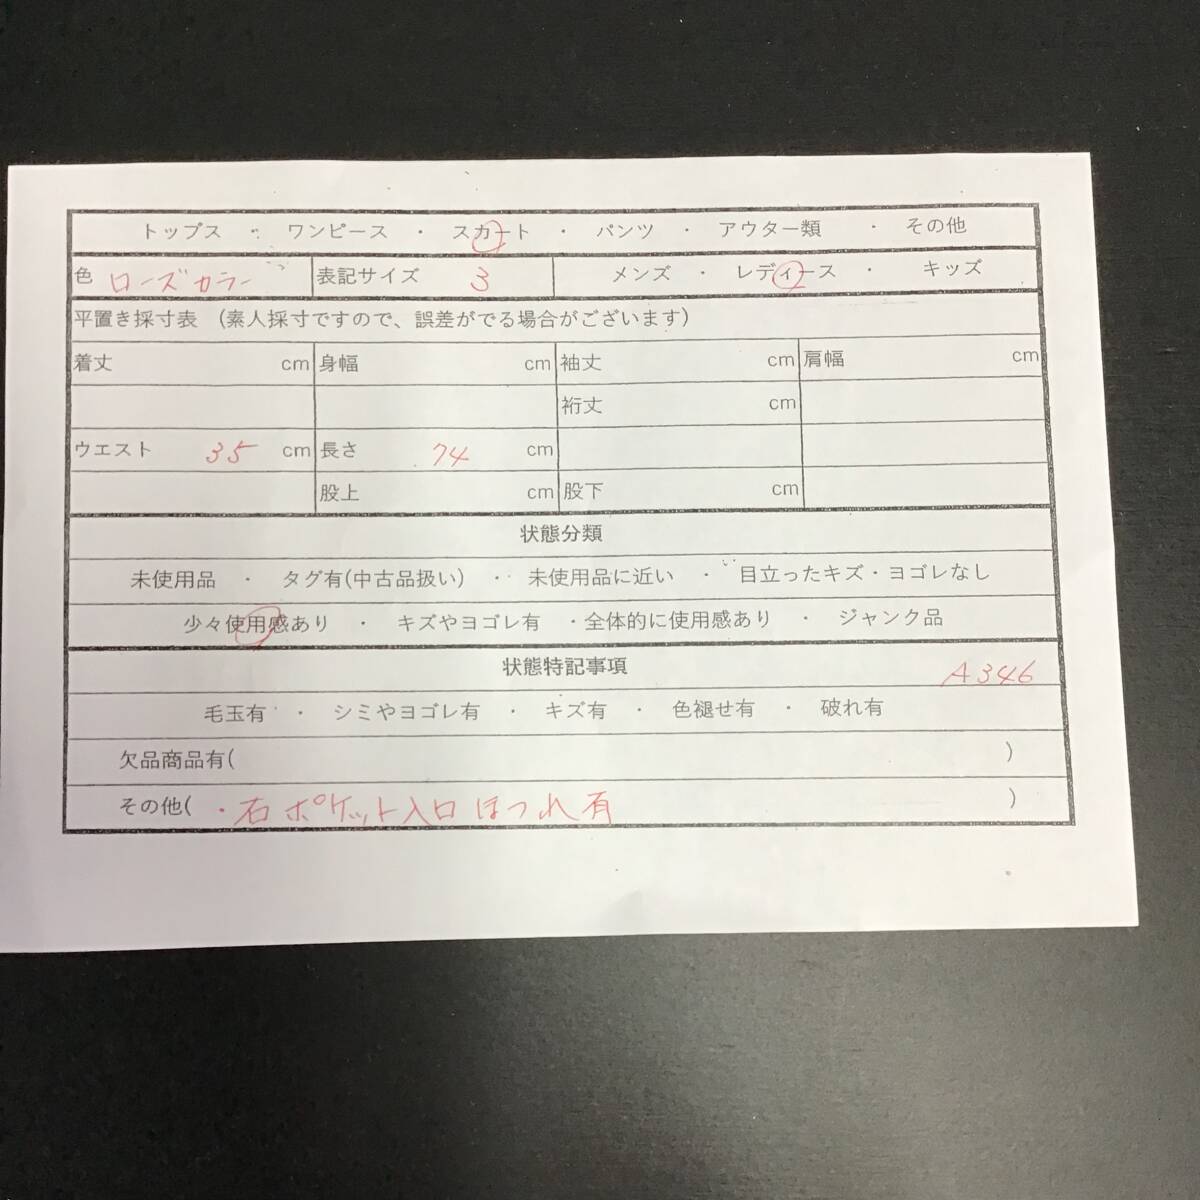 トップス ・ ワンピース ・ スカート ・ パンツ ・ アウター類 ・ その他
色 ローズカラー 表記サイズ 3 メンズ ・ レディース ・ キッズ
平置き採寸表 (素人採寸ですので、誤差がでる場合がございます)
着丈 cm 身幅 cm 袖丈 cm 肩幅 cm
裄丈 cm
ウエスト 35 cm 長さ 74 cm
股上 cm 股下 cm
状態分類
未使用品 ・ タグ有(中古品扱い) ・ 未使用品に近い ・ 目立ったキズ・ヨゴレなし
少々使用感あり ・ キズやヨゴレ有 ・全体的に使用感あり ・ ジャンク品
状態特記事項 A346
毛玉有 ・ シミやヨゴレ有 ・ キズ有 ・ 色褪せ有 ・ 破れ有
欠品商品有( )
その他( ・右ポケット入口ほつれ有 )